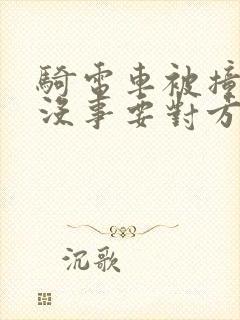 騎電車被撞
沒事要對方
沉歌